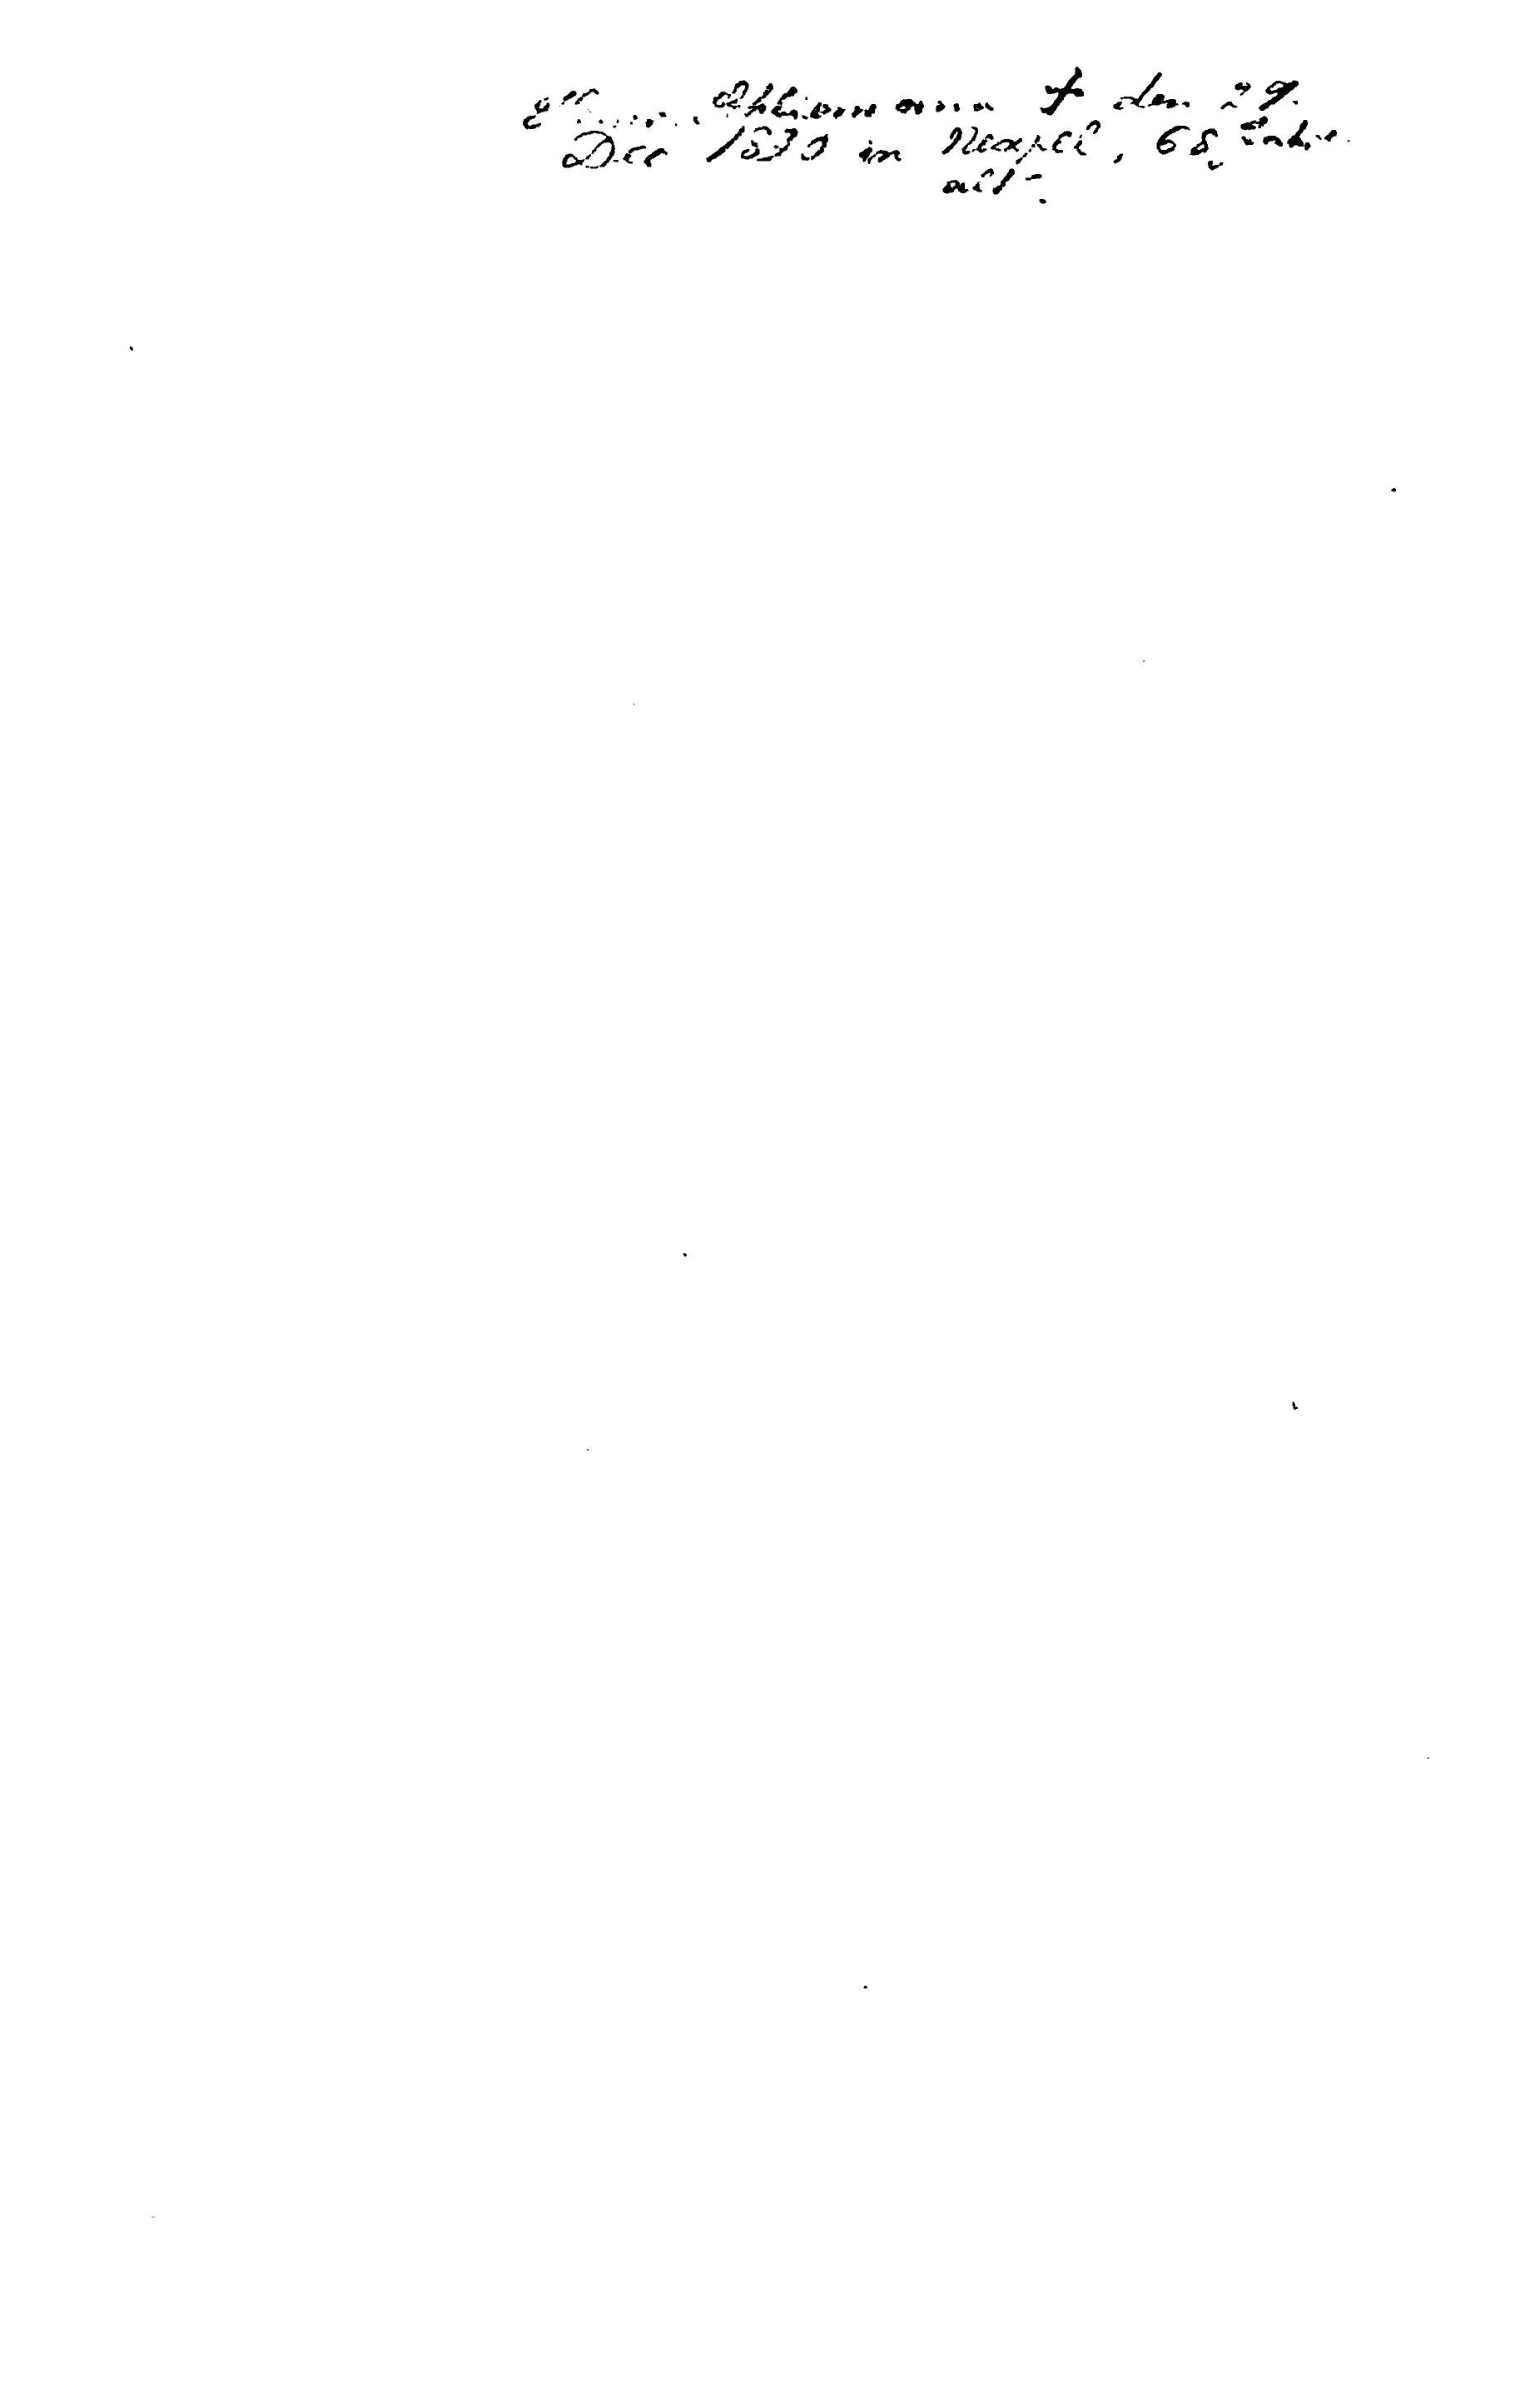 Schliemann † den 29.
Dec 1890 in Neapel, 68 Jahre
alt.